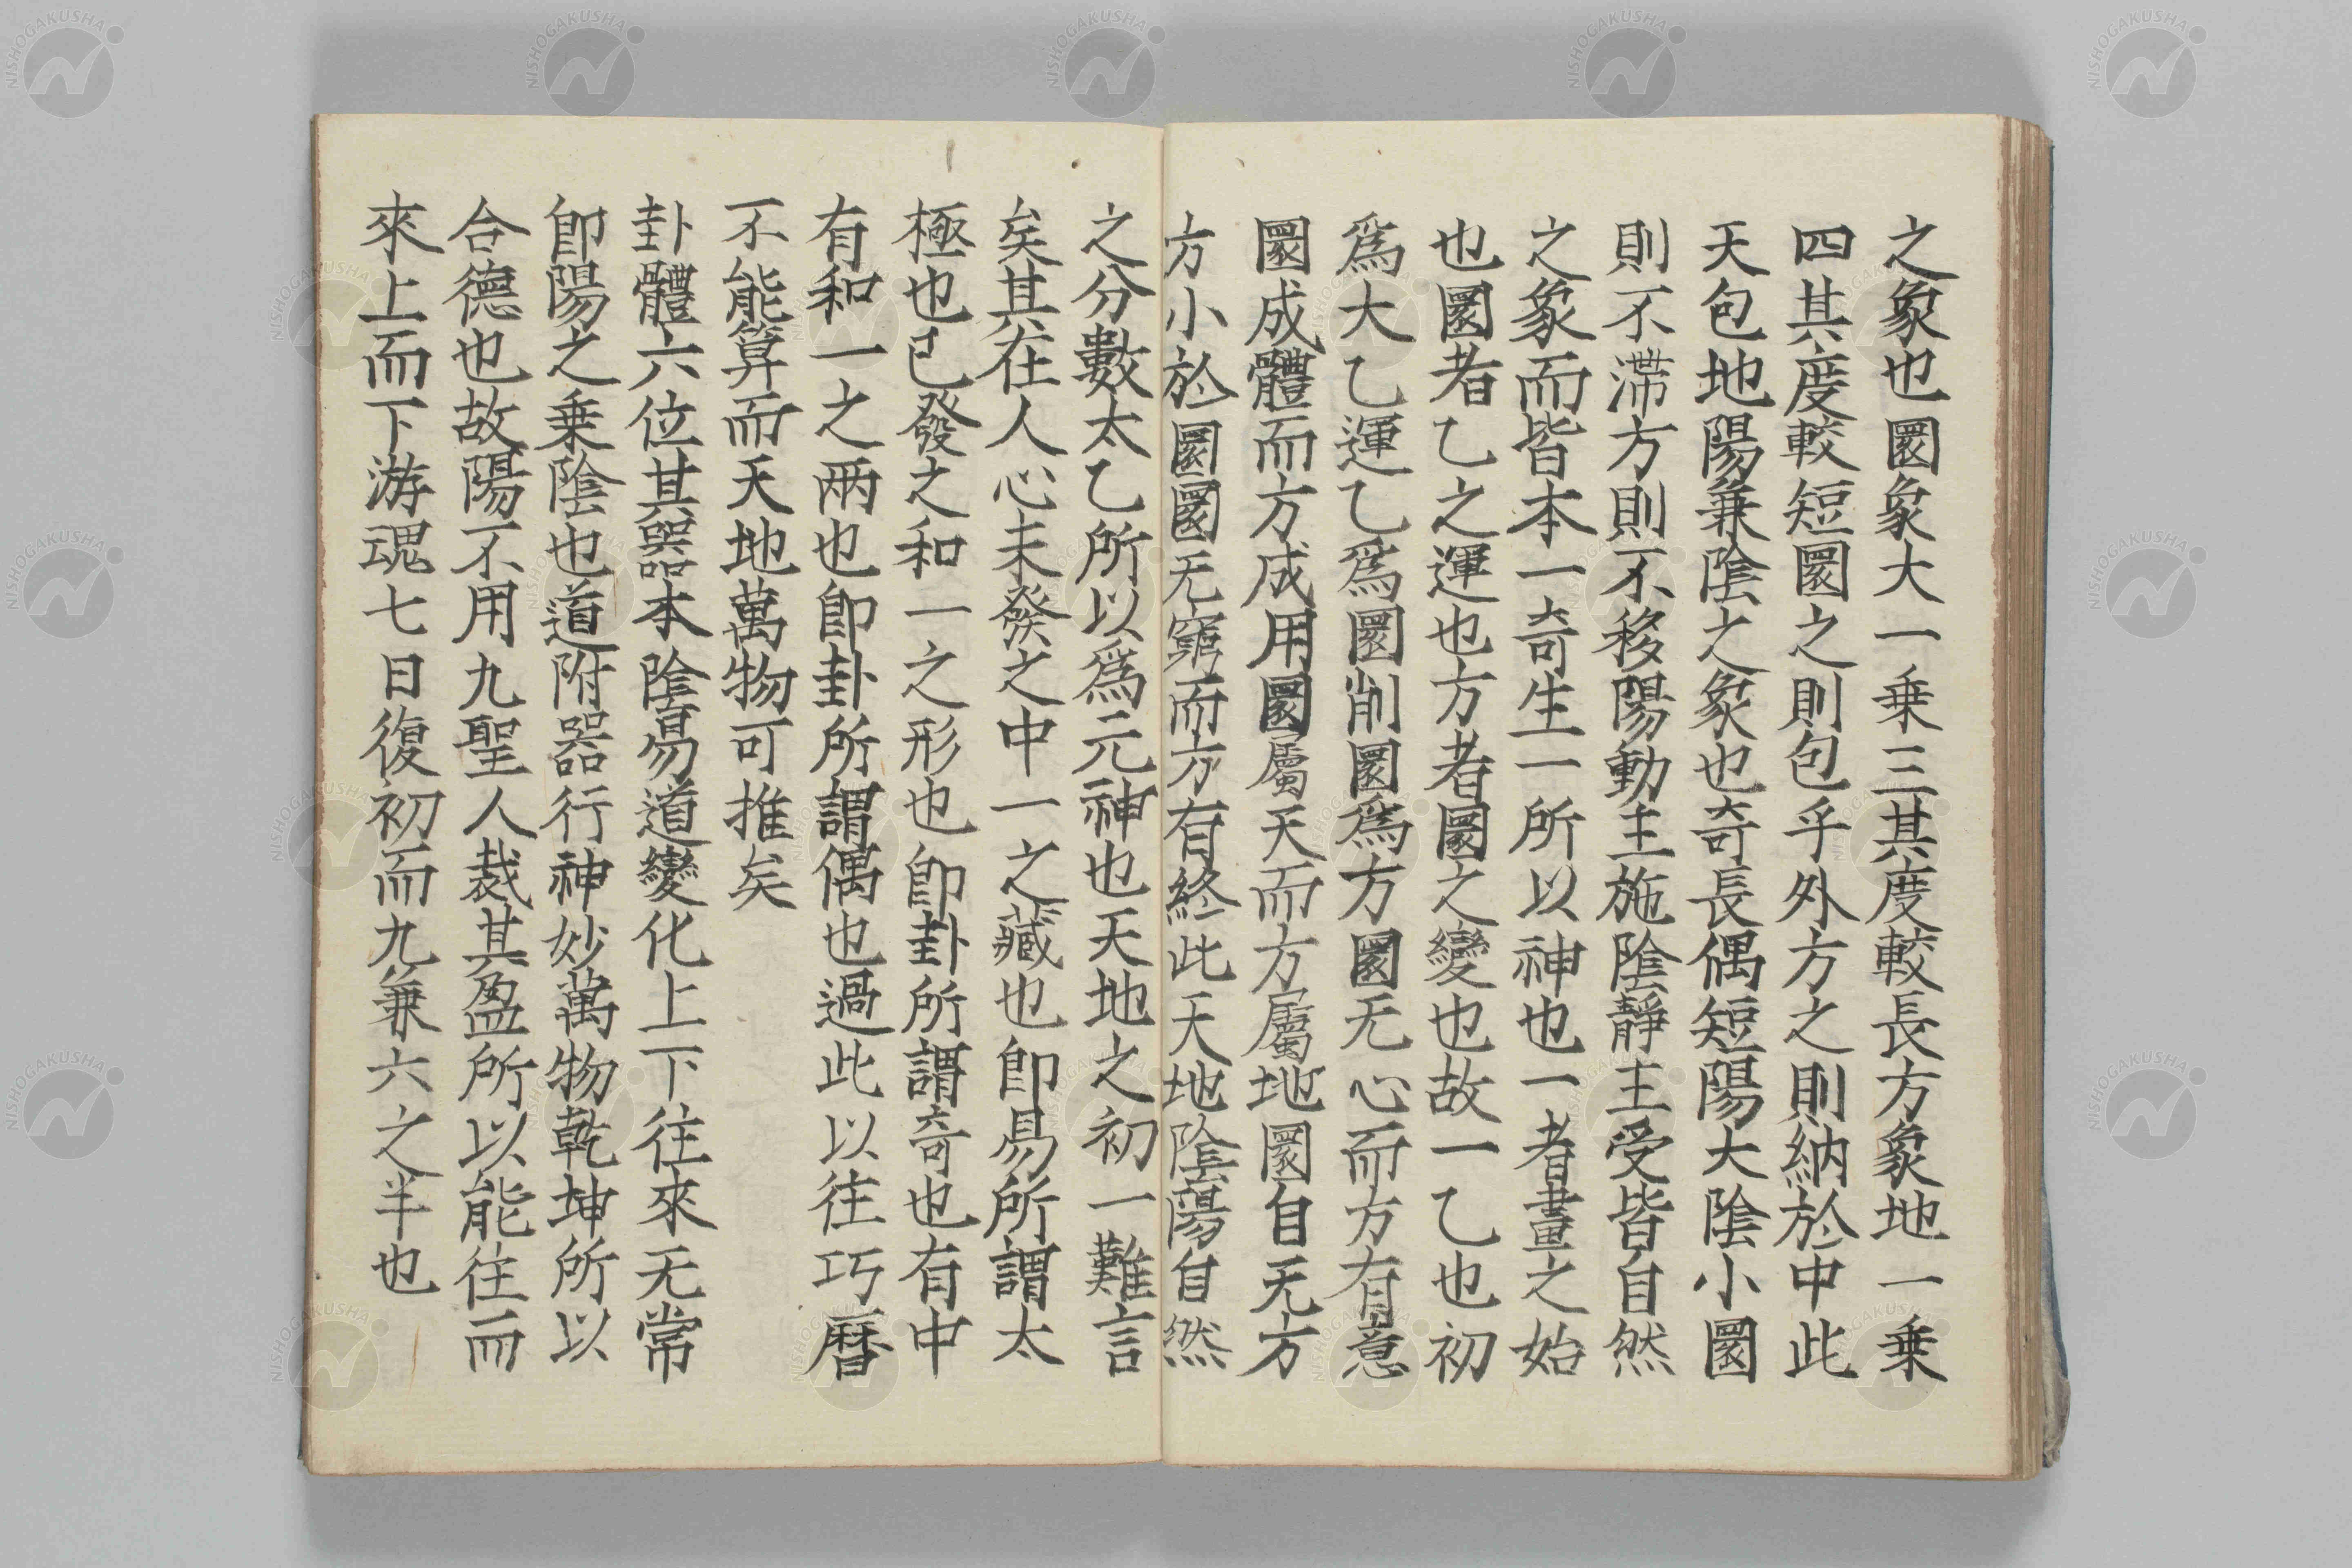 之象也圜象大一乗三其度較長方象地一乗
四其度較短圜之則包乎外方之則納於中此
天包地陽兼陰之象也奇長偶短陽大陰小圜
則不滯方則不移陽動主施陰靜主受皆自然
之象而皆本一奇生一所以神也一者畫之始
也圜者乙之運也方者圜之變也故一乙也初
爲大乙運乙爲圜削圜爲方圜无心而方有意
圜成體而方成用圜屬天而方屬地圜自无方
方小於圜圜无窮而方有終此天地陰陽自然
之分數太乙所以爲元神也天地之初一難言
矣其在人心未發之中一之藏也卽易所謂太
極也已發之和一之形也卽卦所謂奇也有中
有和一之兩也卽卦所謂偶也過此以往巧曆
不能算而天地萬物可推矣
卦體六位其器本陰易道變化上下往來无常
卽陽之乗陰也道附器行神妙萬物乾坤所以
合德也故陽不用九聖人裁其盈所以能往而
來上而下游魂七日復初而九兼六之半也
NISHOGAKUSHA